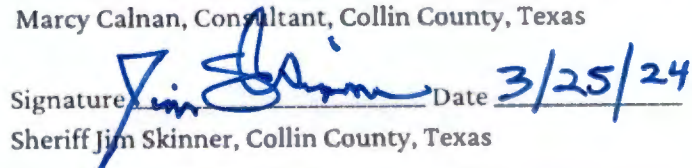 Marcy Calnan, Consultant, Collin County, Texas
Signature Jim Skinner Date 3/25/24
Sheriff Jim Skinner, Collin County, Texas